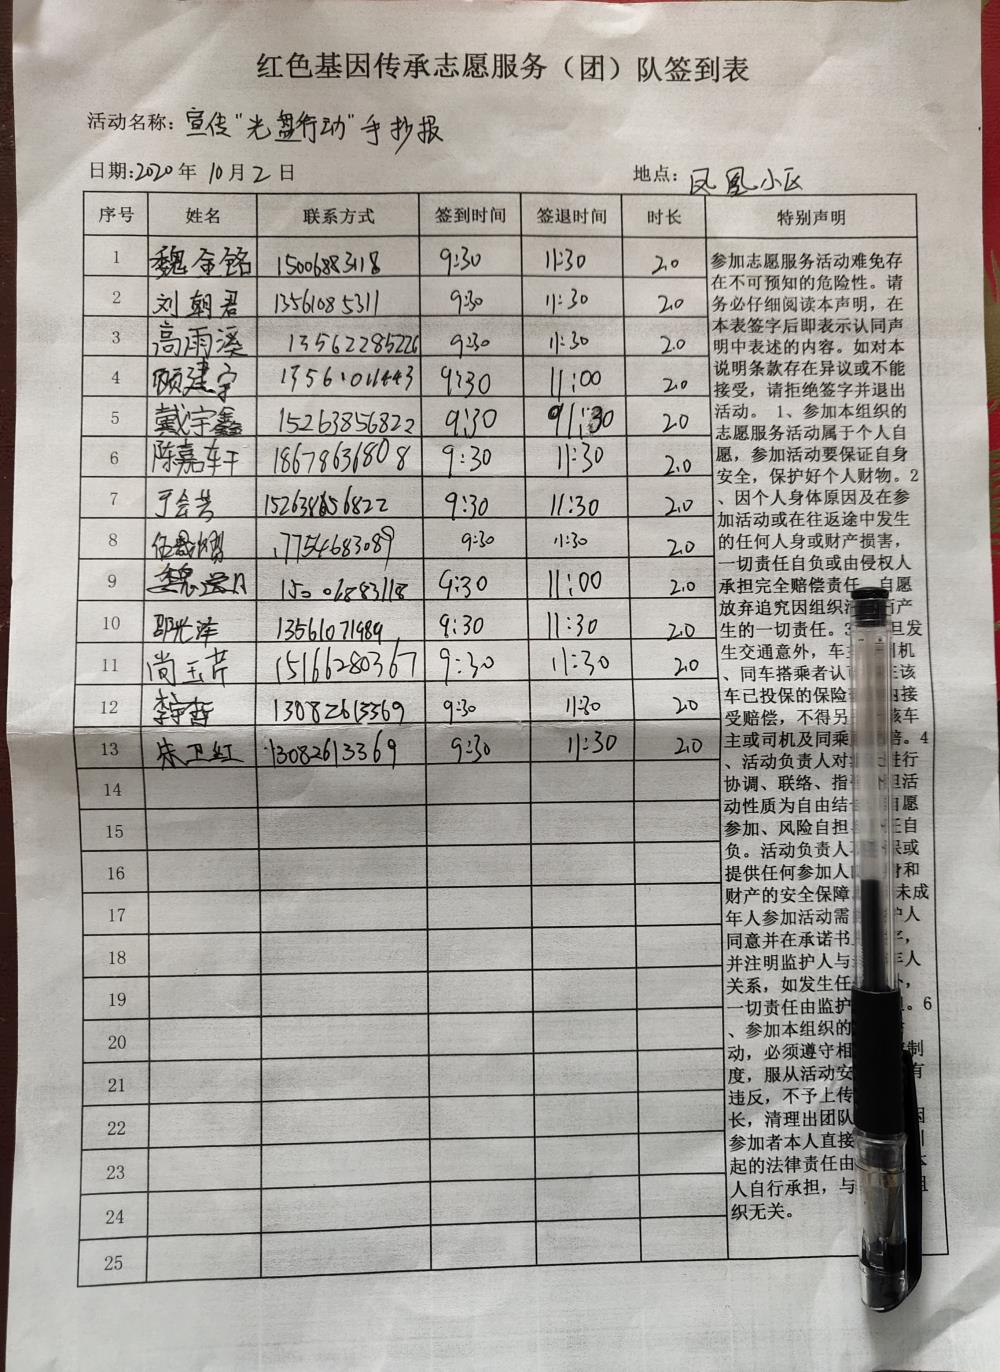 红色基因传承志愿服务（团）队签到表
活动名称：宣传"光盘行动"手抄报
日期:2020年10月2日 地点：凤凰小区
序号 姓名 联系方式 签到时间 签退时间 时长 特别声明
1 魏金铭 15006883118 9:30 11:30 2.0
2 刘朝君 13561085311 9:30 11:30 2.0
3 高雨溪 13562285226 9:30 11:30 2.0
4 顾建宇 9:30 11:00 2.0
5 戴宇鑫 15263856822 9:30 11:30 2.0
6 陈嘉轩 18678636808 9:30 11:30 2.0
7 于会芳 15263856822 9:30 11:30 2.0
8 17754683089 9:30 11:30 2.0
9 15006883118 9:30 11:00 2.0
10 13561071989 9:30 11:30 2.0
11 尚玉芹 15166280367 9:30 11:30 2.0
12 李宇哲 13082613369 9:30 11:30 2.0
13 朱卫红 13082613369 9:30 11:30 2.0
14
15
16
17
18
19
20
21
22
23
24
25
参加志愿服务活动难免存
在不可预知的危险性。请
务必仔细阅读本声明，在
本表签字后即表示认同声
明中表述的内容。如对本
说明条款存在异议或不能
接受，请拒绝签字并退出
活动。 1、参加本组织的
志愿服务活动属于个人自
愿，参加活动要保证自身
安全，保护好个人财物。2
、因个人身体原因及在参
加活动或在往返途中发生
的任何人身或财产损害，
一切责任自负或由侵权人
承担完全赔偿责任，自愿
放弃追究因组织 而产
生的一切责任。3 旦发
生交通意外，车 司机
、同车搭乘者认 在该
车已投保的保险 内接
受赔偿，不得另 该车
主或司机及同乘 赔。4
、活动负责人对 进行
协调、联络、指 担活
动性质为自由结 自愿
参加、风险自担 任自
负。活动负责人 保或
提供任何参加人 身和
财产的安全保障 未成
年人参加活动需 护人
同意并在承诺书 字，
并注明监护人与 年人
关系，如发生任 外，
一切责任由监护 。6
、参加本组织的
动，必须遵守相 制
度，服从活动安 有
违反，不予上传
长，清理出团队 因
参加者本人直接 引
起的法律责任由 本
人自行承担，与 组
织无关。